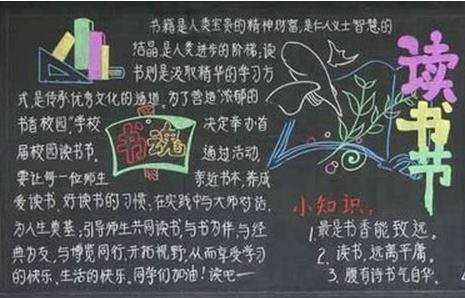 书籍是人类宝贵的精神财富,是仁人义士智慧的
结晶,是人类进步的阶梯;读
书则是汲取精华的学习方
式,是传承优秀文化的通道。为了营造“浓郁的
书香校园”,学校 决定举办首
届校园读书节。 通过活动,
要让每一位师生 亲近书本,养成
爱读书、好读书的习惯,在实践中与大师对话,
为人生奠基;引导师生共同读书,与书为伴,与经
典为友,与博览同行,开拓视野,从而享受学习
的快乐、生活的快乐。同学们加油!读吧—
书魂
读书节
小知识:
1.最是书香能致远。
2.读书,远离平庸。
3.腹有诗书气自华。